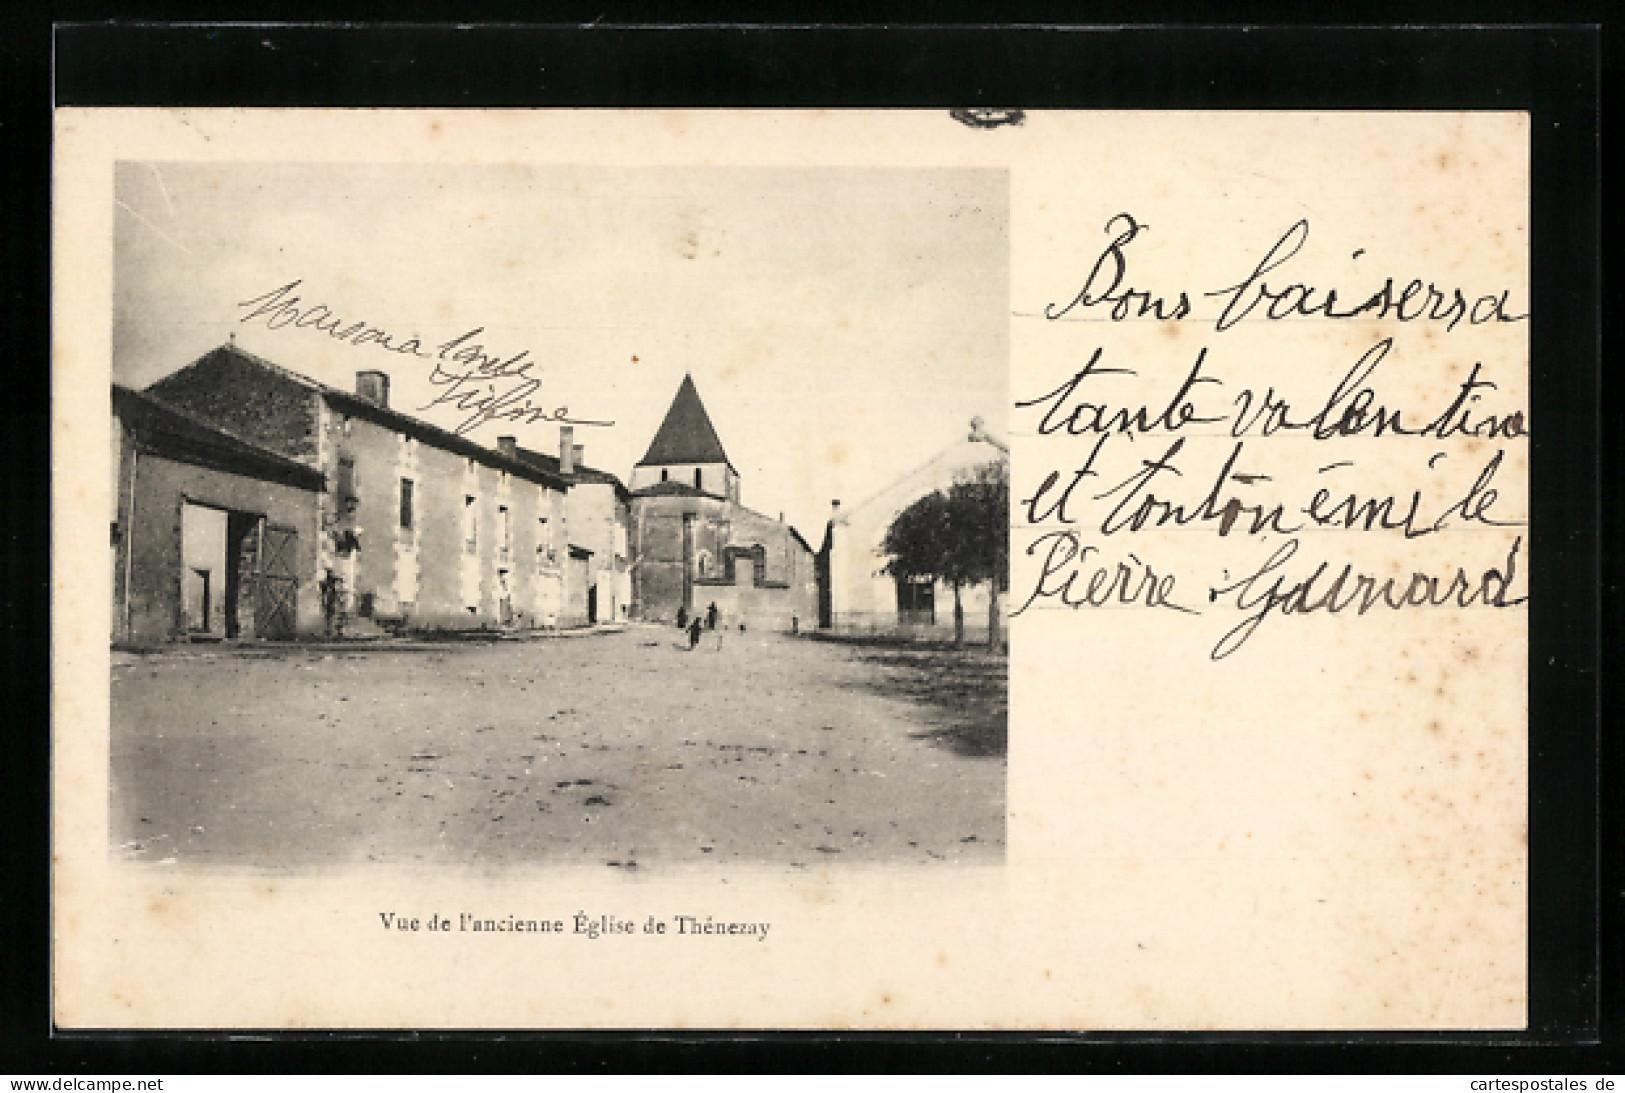 Maison a tante
Bons baisers a
tante valentine
et tonton émile
Pierre Guinard
Vue de l'ancienne Église de Thénezay
cartespostales de
www.cartespostales.de